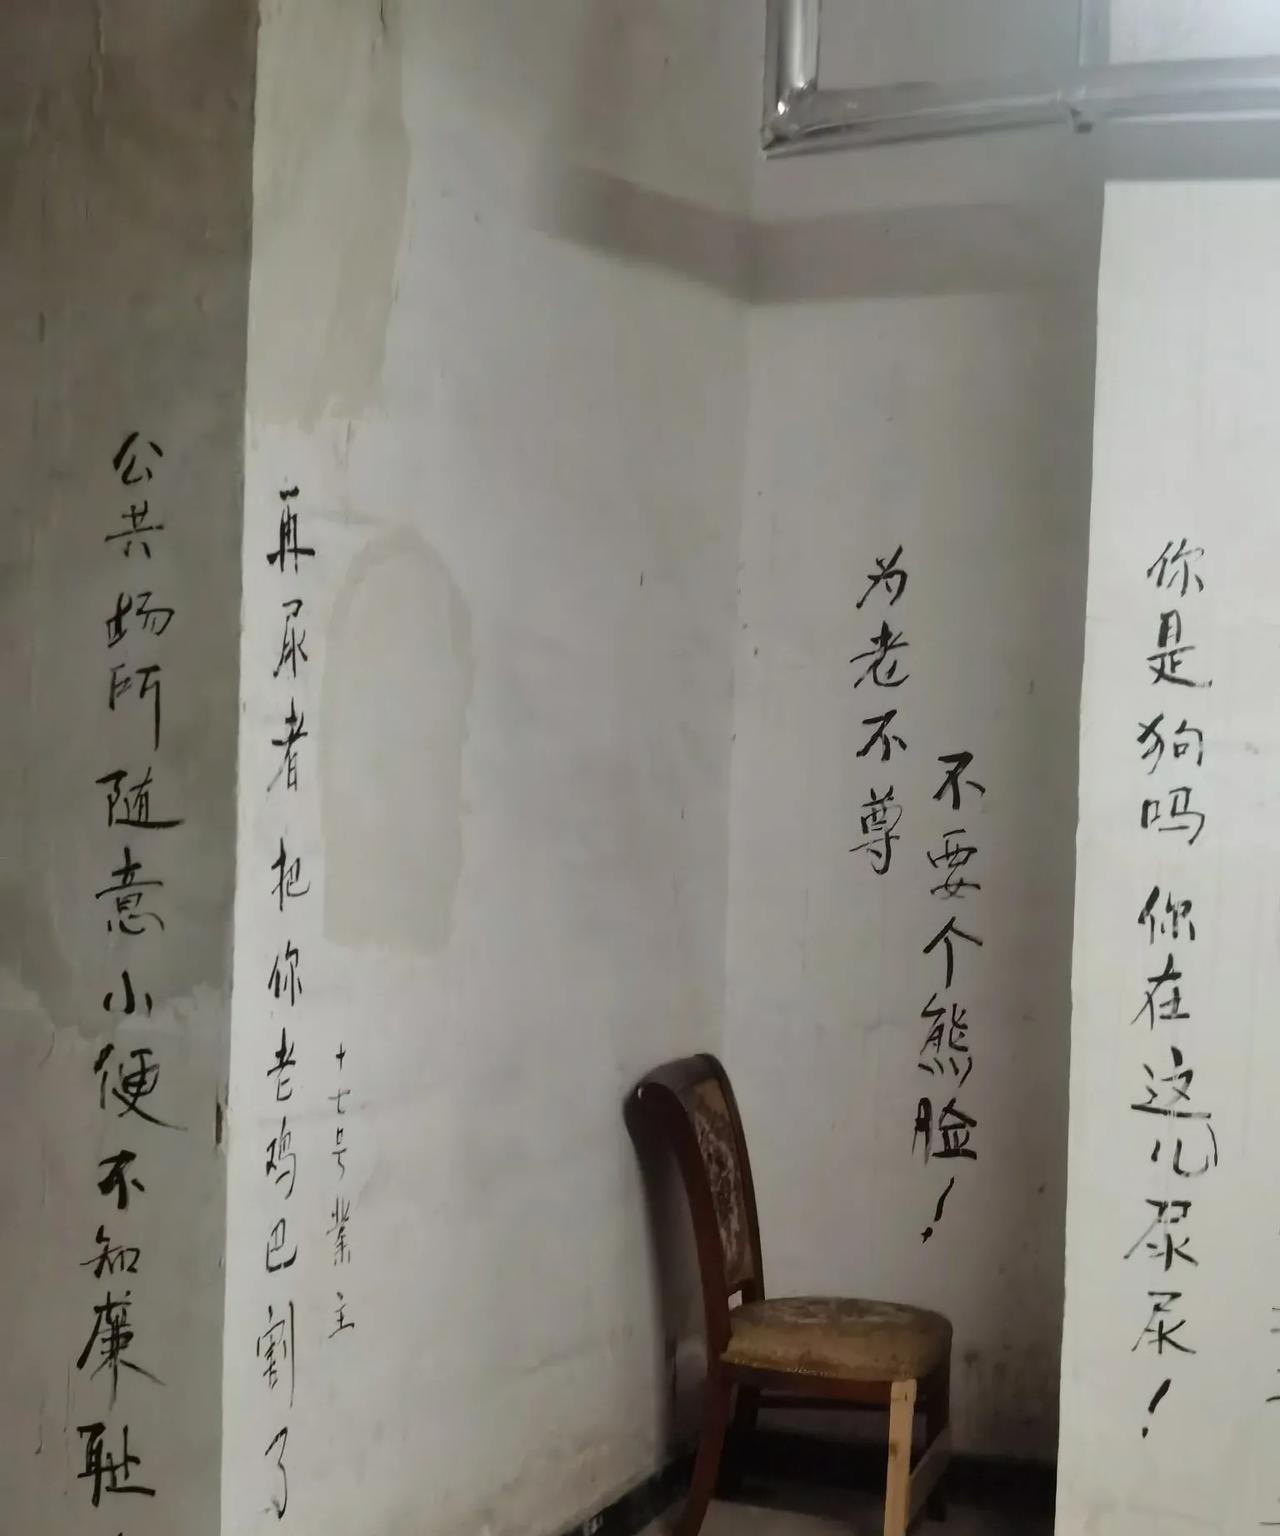 公共场所随意小便不知廉耻
再尿者把你老鸡巴割了
十七号業主
为老不尊
不要个熊脸！
你是狗吗你在这儿尿尿！